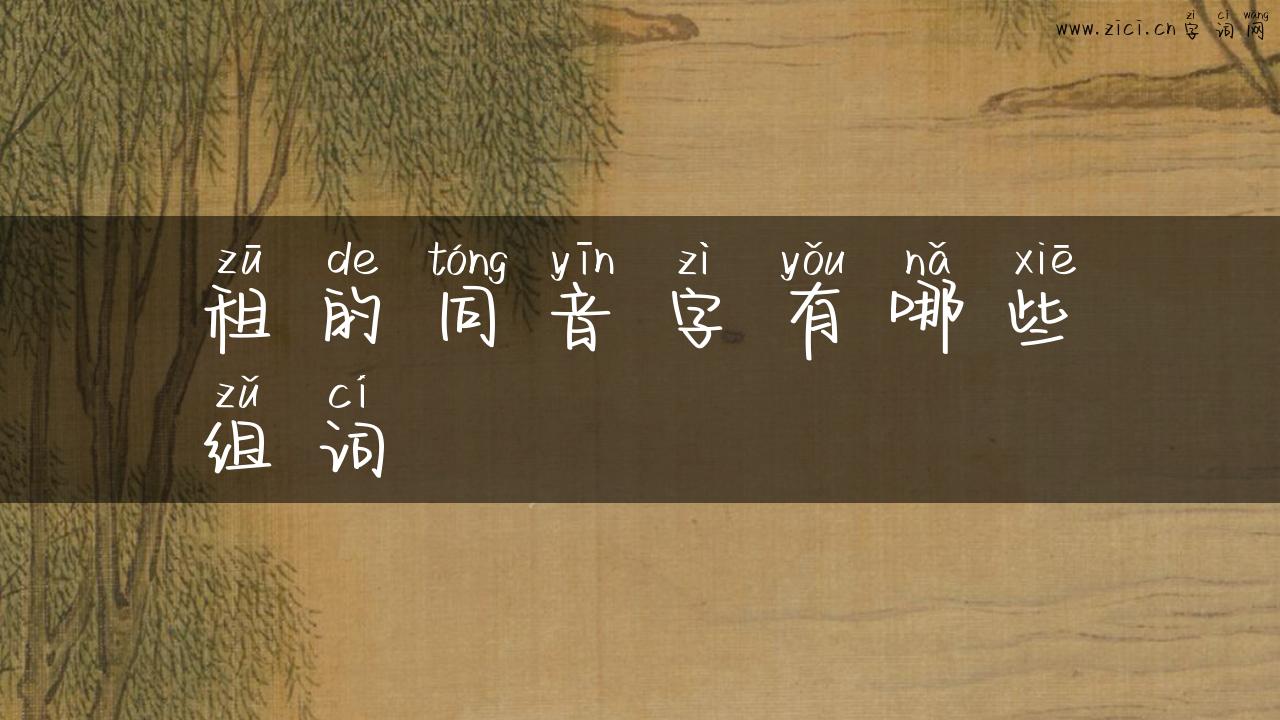 zì cí wǎng
www.zici.cn 字词网
zū de tóng yīn zì yǒu nǎ xiē
租的同音字有哪些
zǔ cí
组词